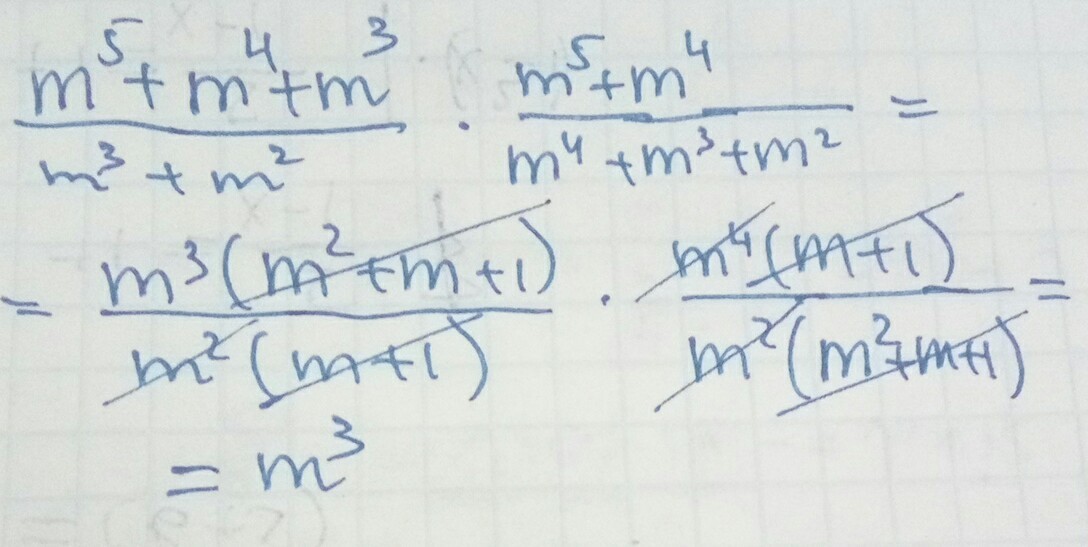 m⁵+m⁴+m³ / m³+m² · m⁵+m⁴ / m⁴+m³+m² =
= m³(m²+m+1) / m²(m+1) · m⁴(m+1) / m²(m²+m+1) =
= m³